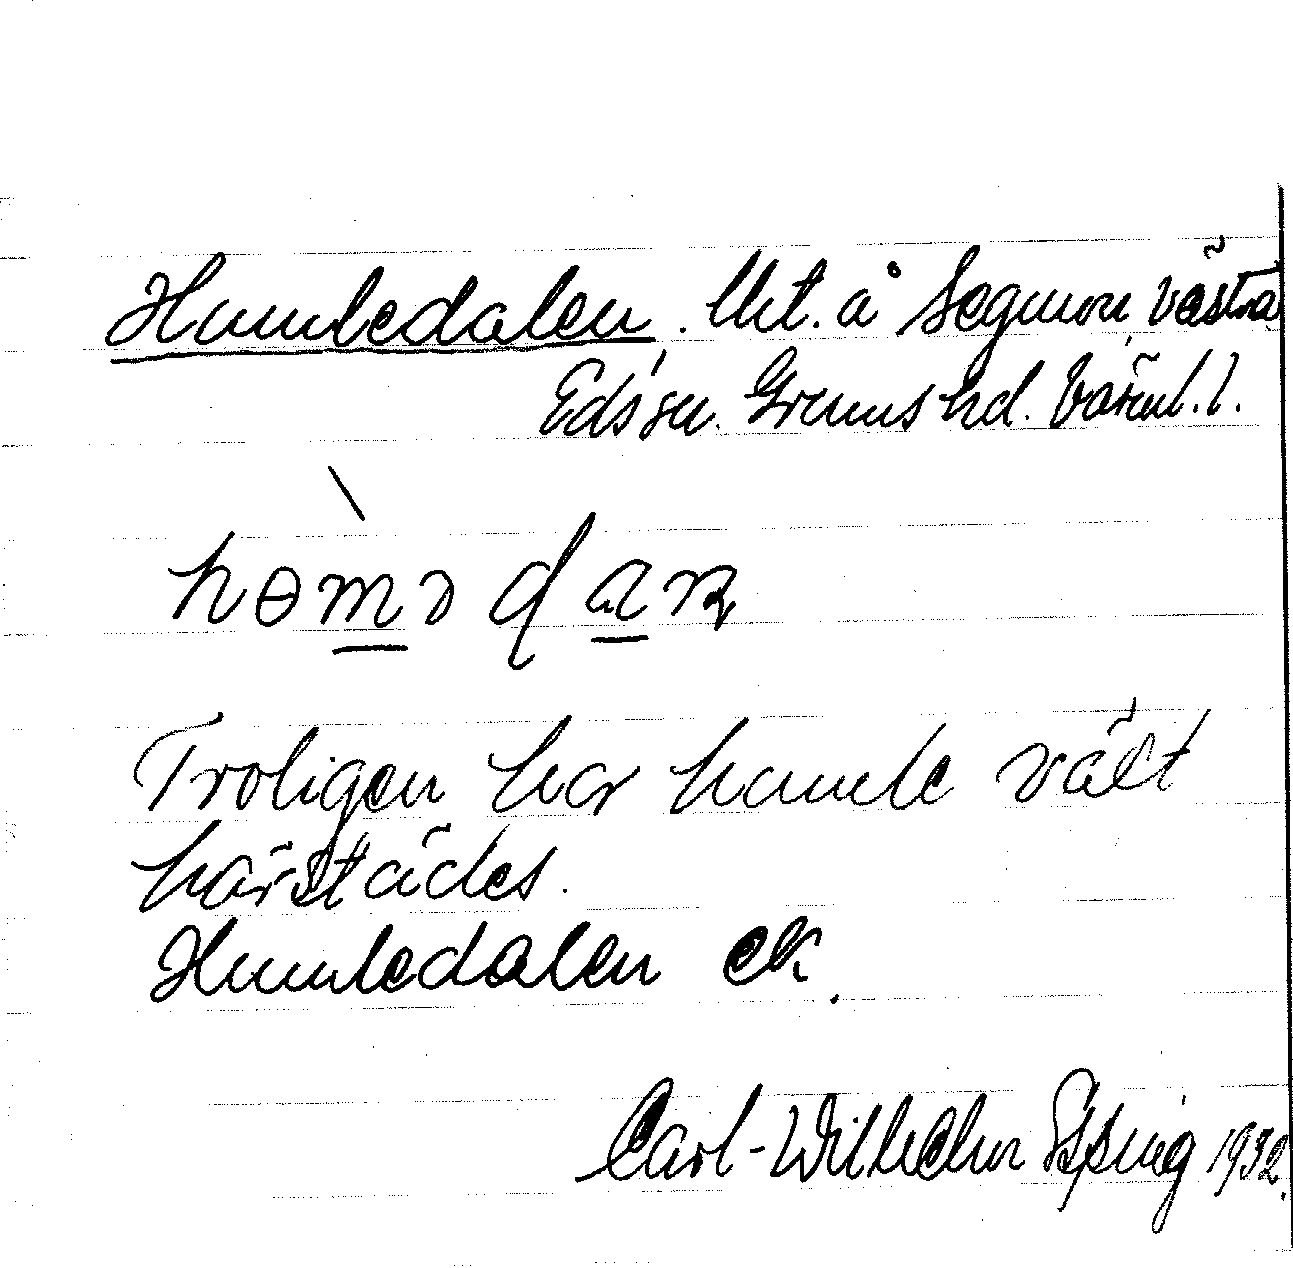 Humledalen. Utl. å Segmon västra
Eds sn. Grums hd. Värml. l.
Troligen har humle växt
härstädes.
Humledalen ek.
Carl-Wilhelm Esping 1932.